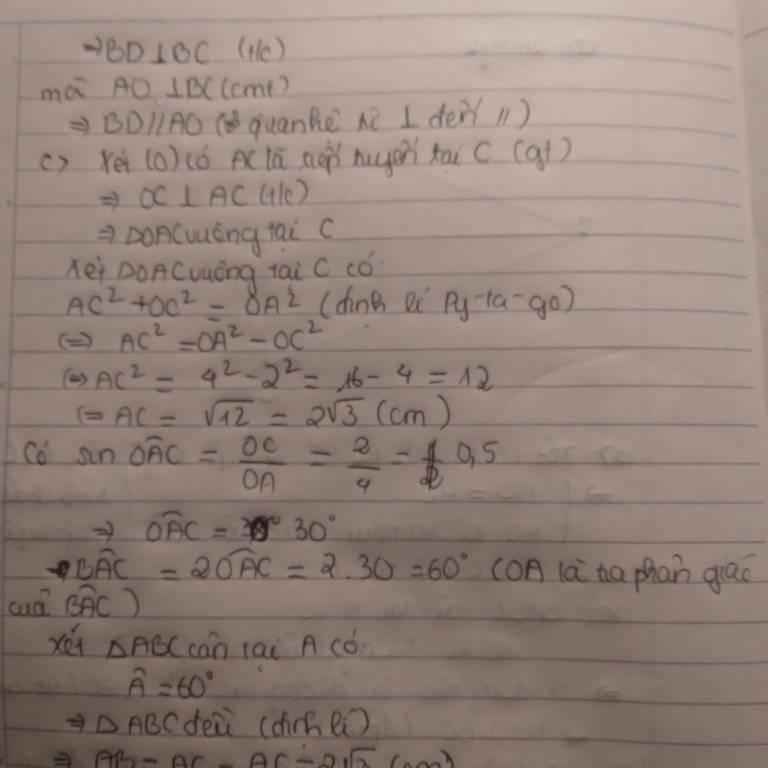 ⇒ BD ⊥ BC (t/c)
mà AO ⊥ BC (cmt)
⇒ BD // AO (quan hệ từ ⊥ đến //)
c) Xét (O) có AC là tiếp tuyến tại C (gt)
⇒ OC ⊥ AC (t/c)
⇒ ΔOAC vuông tại C
Xét ΔOAC vuông tại C có
AC² + OC² = OA² (định lí Py-ta-go)
⇔ AC² = OA² - OC²
⇔ AC² = 4² - 2² = 16 - 4 = 12
⇔ AC = √12 = 2√3 (cm)
Có sin OÂC = OC/OA = 2/4 = 0,5
⇒ OÂC = 30°
BÂC = 2OÂC = 2.30 = 60° (OA là tia phân giác
của BÂC)
Xét ΔABC cân tại A có
Â = 60°
⇒ ΔABC đều (định lí)
⇒ AB = AC = AC = 2√3 (cm)